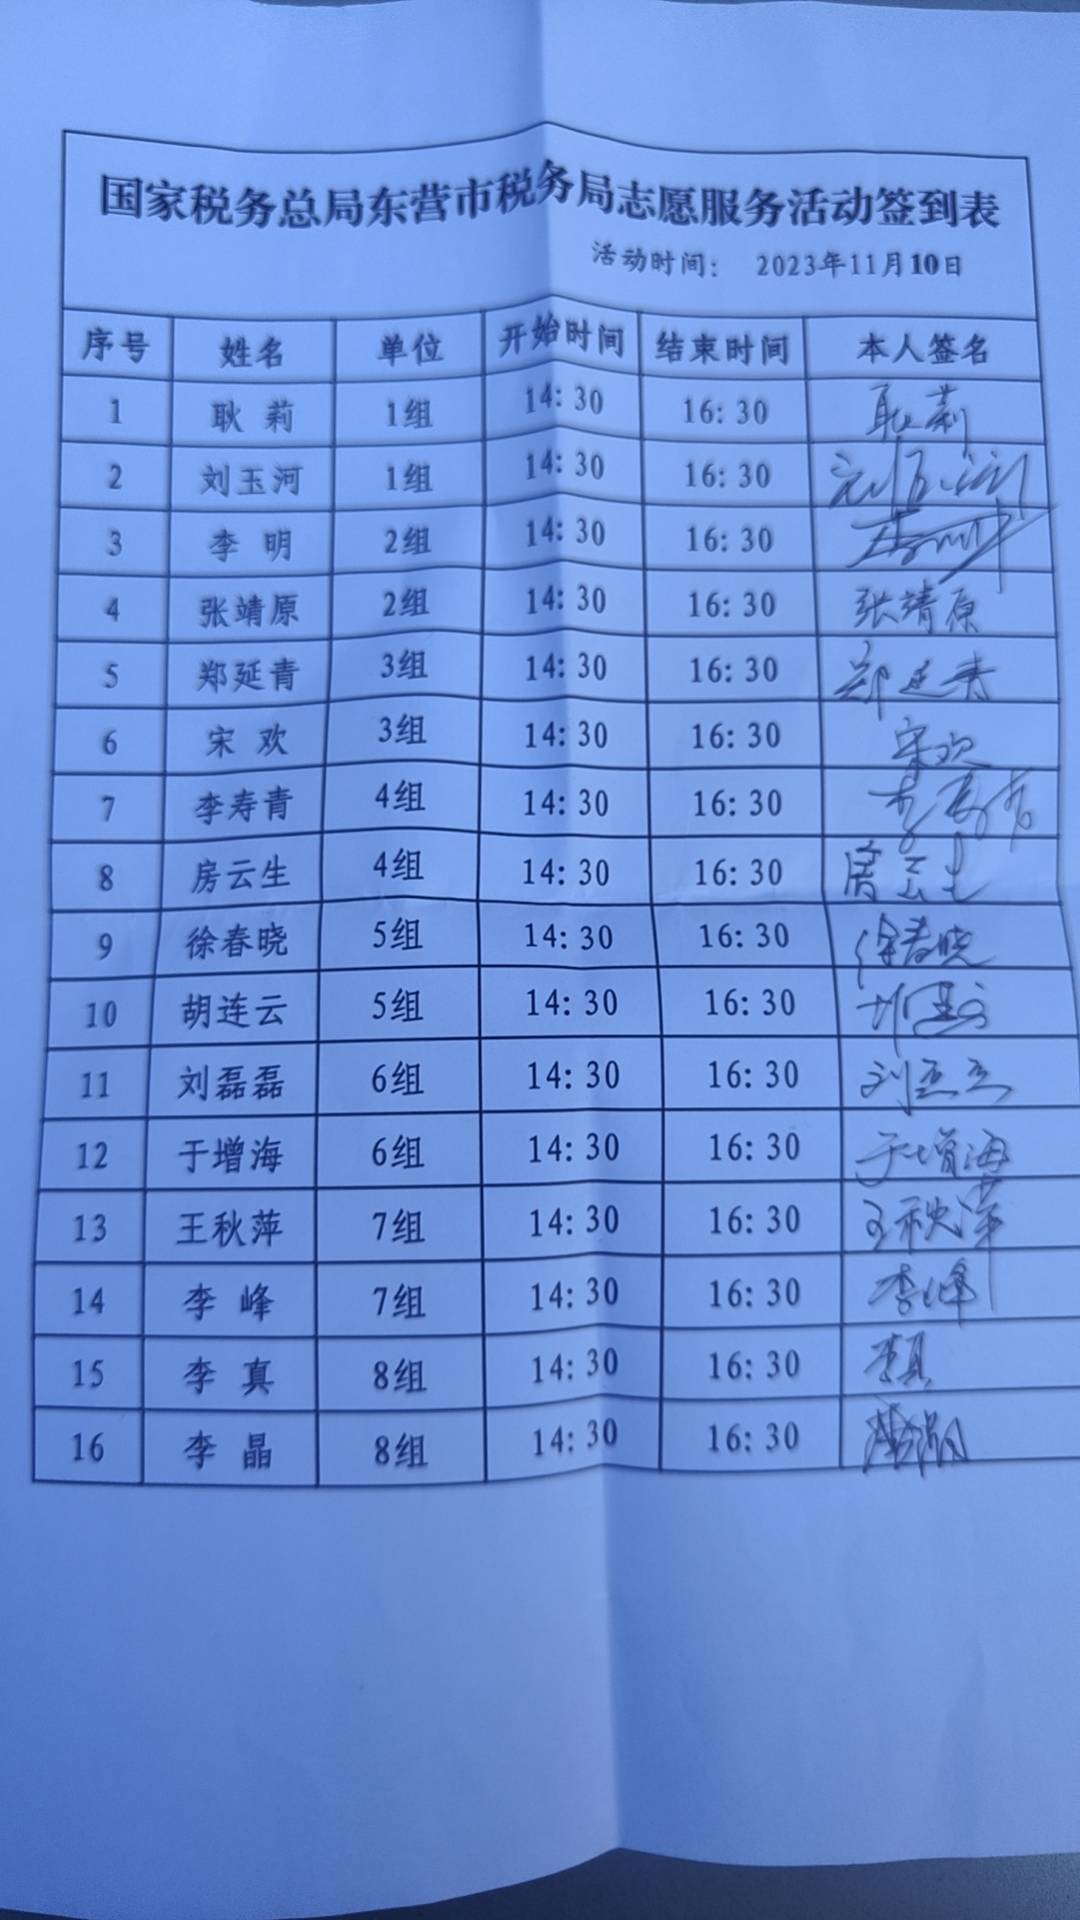 国家税务总局东营市税务局志愿服务活动签到表
活动时间： 2023年11月10日
序号 姓名 单位 开始时间 结束时间 本人签名
1 耿 莉 1组 14: 30 16: 30 耿莉
2 刘玉河 1组 14: 30 16: 30 刘玉河
3 李 明 2组 14: 30 16: 30 李明
4 张靖原 2组 14: 30 16: 30 张靖原
5 郑延青 3组 14: 30 16: 30 郑延青
6 宋 欢 3组 14: 30 16: 30 宋欢
7 李寿青 4组 14: 30 16: 30 李寿青
8 房云生 4组 14: 30 16: 30 房云生
9 徐春晓 5组 14: 30 16: 30 徐春晓
10 胡连云 5组 14: 30 16: 30
11 刘磊磊 6组 14: 30 16: 30 刘磊磊
12 于增海 6组 14: 30 16: 30 于增海
13 王秋萍 7组 14: 30 16: 30 王秋萍
14 李 峰 7组 14: 30 16: 30 李峰
15 李 真 8组 14: 30 16: 30 李真
16 李 晶 8组 14: 30 16: 30